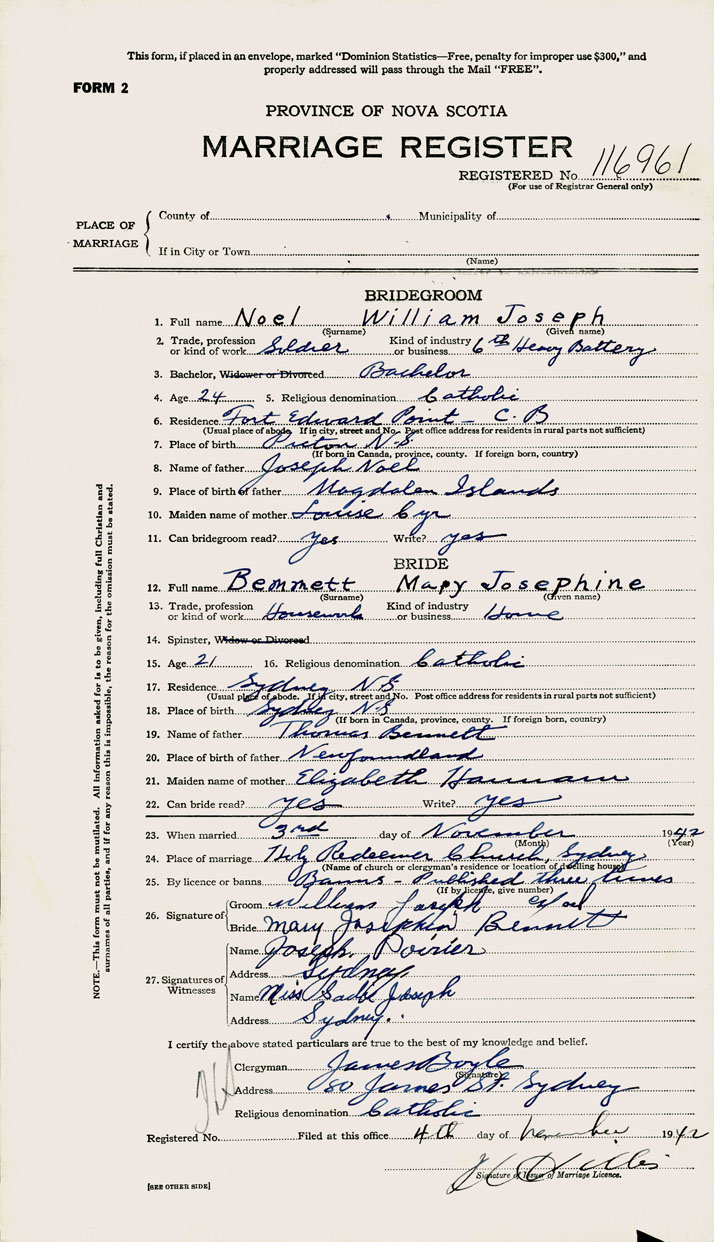 This form, if placed in an envelope, marked “Dominion Statistics—Free, penalty for improper use $300,” and
properly addressed will pass through the Mail “FREE”.
FORM 2
PROVINCE OF NOVA SCOTIA
MARRIAGE REGISTER
REGISTERED No 116961
(For use of Registrar General only)
PLACE OF MARRIAGE
County of Municipality of
If in City or Town
(Name)
BRIDEGROOM
1. Full name Noel William Joseph
(Surname) (Given name)
2. Trade, profession or kind of work Soldier Kind of industry or business 6th Heavy Battery
3. Bachelor, Widower or Divorced Bachelor
4. Age 24 5. Religious denomination Catholic
6. Residence Fort Edward Point - C. B
(Usual place of abode. If in city, street and No. Post office address for residents in rural parts not sufficient)
7. Place of birth Pictou N-S
(If born in Canada, province, county. If foreign born, country)
8. Name of father Joseph Noel
9. Place of birth of father Magdalen Islands
10. Maiden name of mother Louise Cyr
11. Can bridegroom read? yes Write? yes
BRIDE
12. Full name Bemmett Mary Josephine
(Surname) (Given name)
13. Trade, profession or kind of work Housework Kind of industry or business Home
14. Spinster, Widow or Divorced
15. Age 21 16. Religious denomination Catholic
17. Residence Sydney N-S
(Usual place of abode. If in city, street and No. Post office address for residents in rural parts not sufficient)
18. Place of birth Sydney N-S
(If born in Canada, province, county. If foreign born, country)
19. Name of father Thomas Bennett
20. Place of birth of father Newfoundland
21. Maiden name of mother Elizabeth
22. Can bride read? yes Write? yes
23. When married 3rd day of November 1942
(Month) (Year)
24. Place of marriage Holy Redeemer Church, Sydney
(Name of church or clergyman's residence or location of dwelling house)
25. By licence or banns Banns - Published three times
(If by licence, give number)
26. Signature of
Groom William Joseph
Bride Mary Josephin Bennett
27. Signatures of Witnesses
Name Joseph Poirier
Address Sydney
Name Miss Sadie Joseph
Address Sydney.
I certify the above stated particulars are true to the best of my knowledge and belief.
Clergyman James Boyle
(Signature)
Address 80 James St. Sydney
Religious denomination Catholic
Registered No. Filed at this office 4th day of November 1942
Signature of Issuer of Marriage Licence.
[SEE OTHER SIDE]
NOTE.—This form must not be mutilated. All information asked for is to be given, including full Christian and
surnames of all parties, and if for any reason this is impossible, the reason for the omission must be stated.